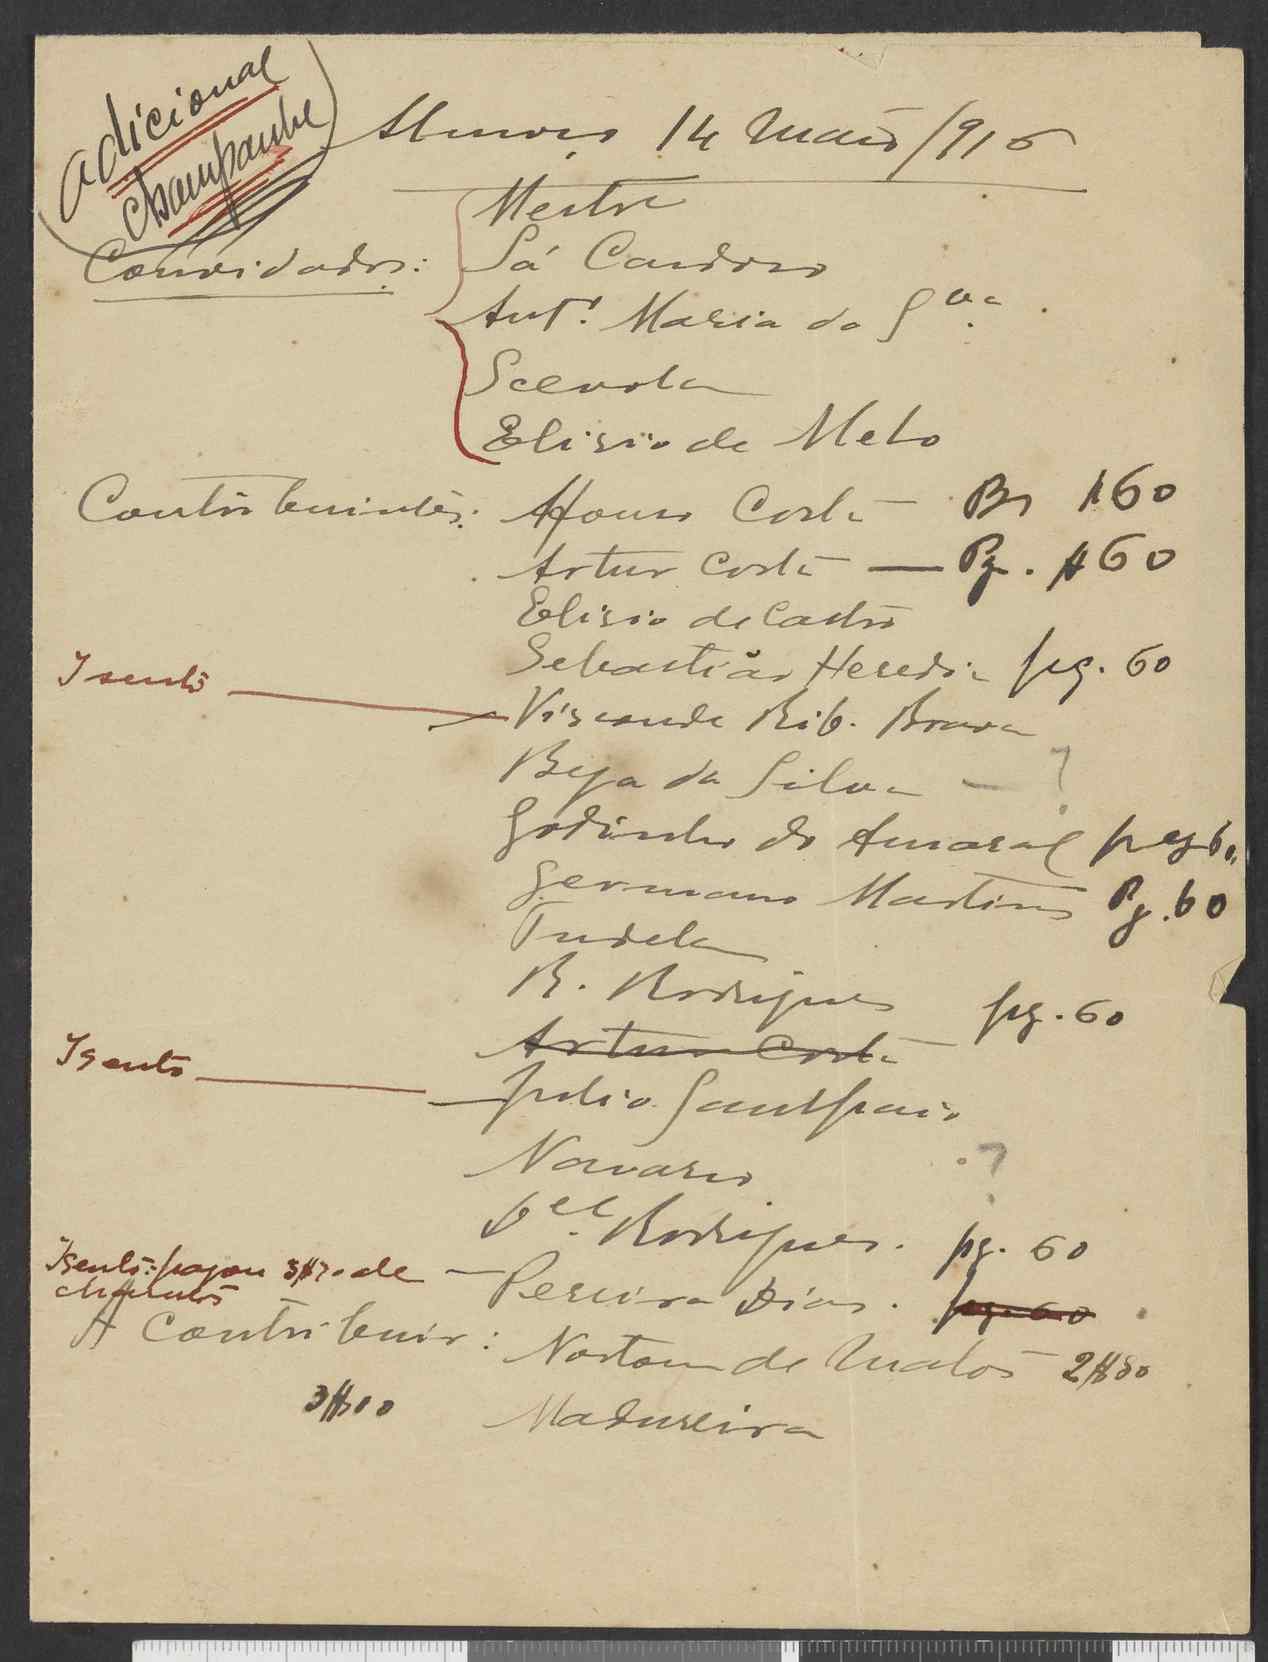 adicional
champanhe
Almoço 14 Maio/916
Convidados: Mestre
Sá Cardoso
Antº Maria da Sva
Scevola
Elisio de Melo
Contribuintes: Afonso Costa — Pg $60
Artur Costa — Pg. $60
Elisio de Castro
Sebastião Heredia pg. 60
Isento — Visconde Rib. Brava
Beja da Silva — ?
Godinho do Amaral pg 60
Germano Martins Pg. 60
Tudela
R. Rodrigues pg. 60
Artur Costa
Isento — Julio Sampaio
Navarro ?
Rodrigues. pg. 60
Isento: pagou 3$70 de — Pereira Dias. pg. 60
charutos
A contribuir: Norton de Matos 2$80
3$00 Madureira